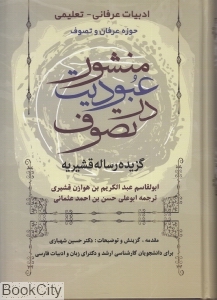 ادبیات عرفانی - تعلیمی
حوزه عرفان و تصوف
منشور
عبودیت
در
تصوف
گزیده رساله قشیریه
ابوالقاسم عبدالکریم بن هوازن قشیری
ترجمه ابوعلی حسن بن احمد عثمانی
مقدمه - گزینش و توضیحات : دکتر حسین شهبازی
برای دانشجویان کارشناسی ارشد و دکترای زبان و ادبیات فارسی
BookCity